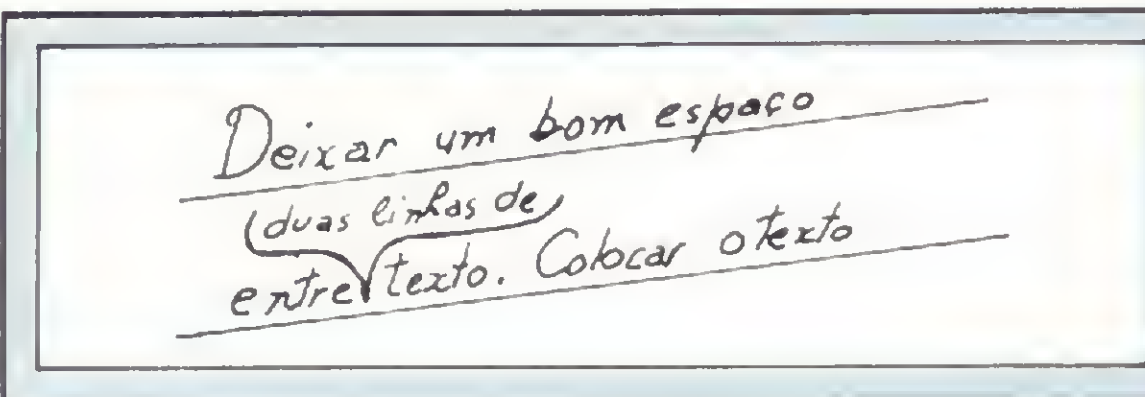 Deixar um bom espaço
(duas linhas de)
entre texto. Colocar o texto